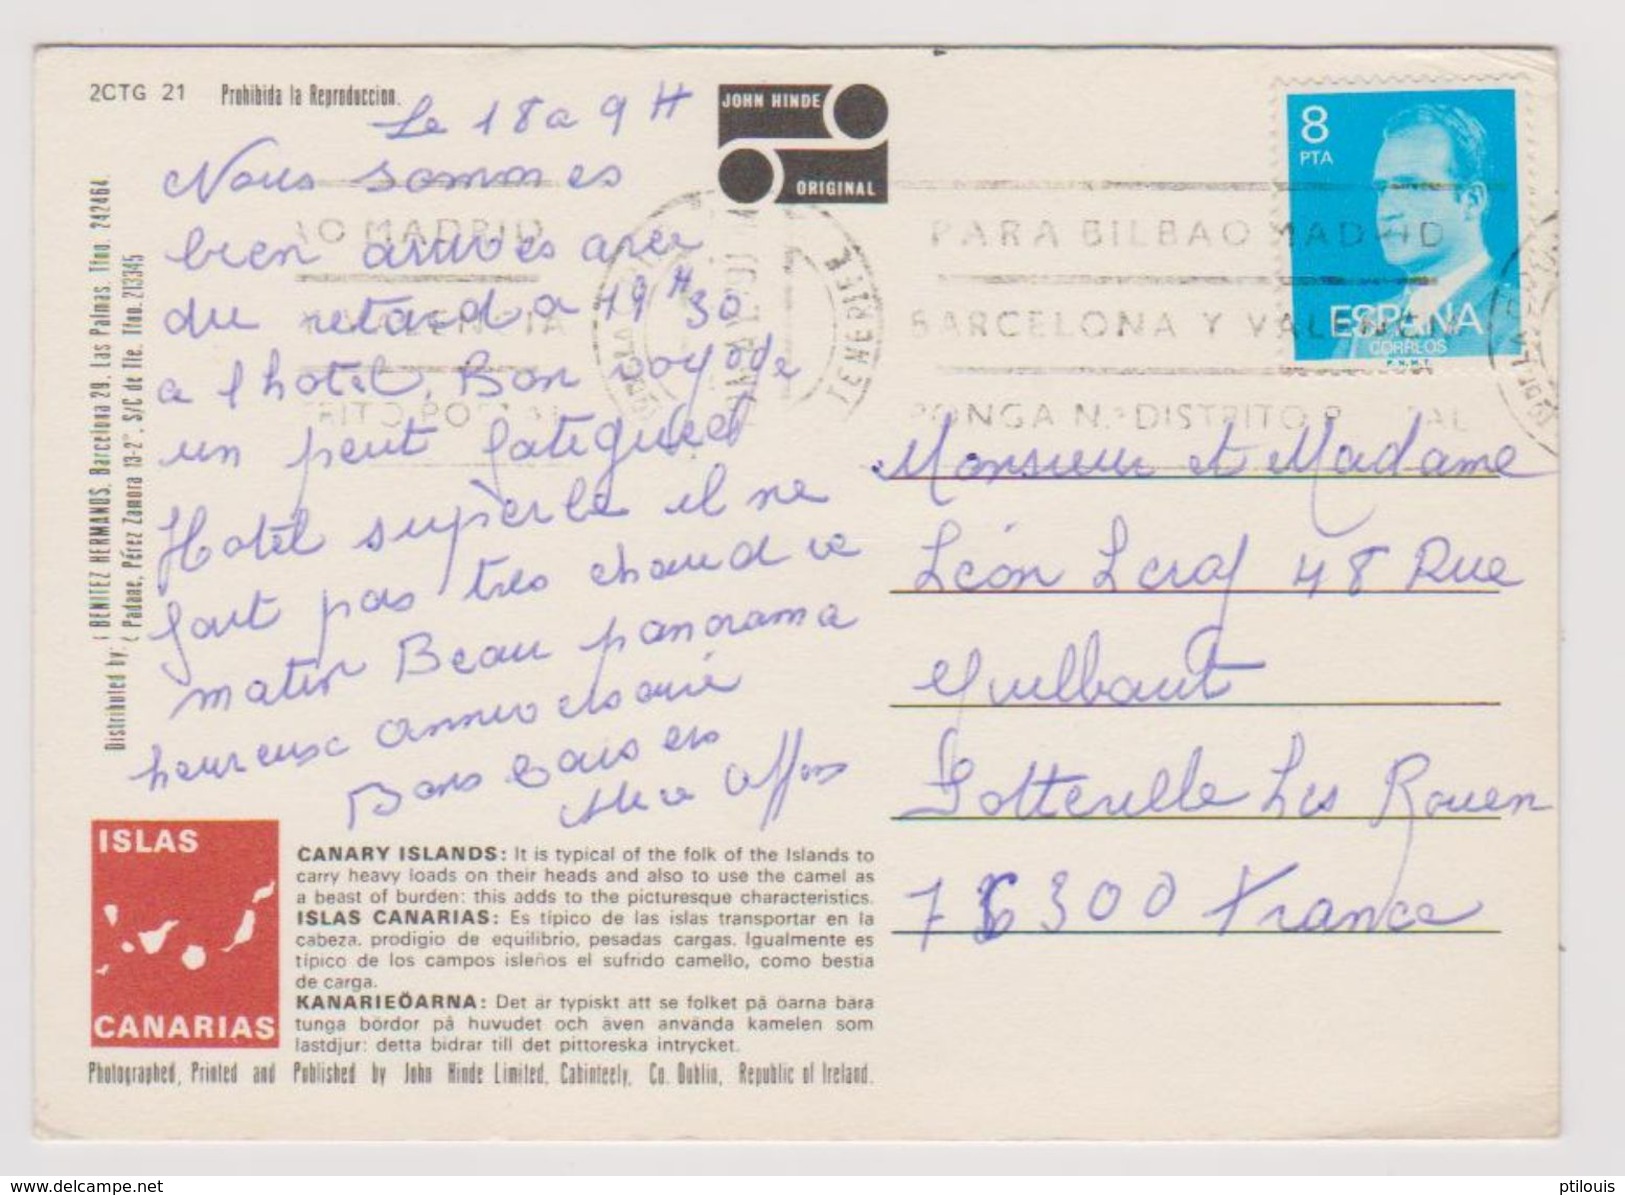 2CTG 21 Prohibida la Reproduccion.
JOHN HINDE
ORIGINAL
8
PTA
ESPAÑA
CORREOS
F.N.M.T.
Le 18 a 9 H
Nous sommes
bien arrivés avec
du retard a 19 H 30
a l hotel, Bon voyage
un peut fatigué
Hotel superbe il ne
fait pas tres chaud ce
matin Beau panorama
heureuse anniversaire
Bons baisers
AO MADRID
TENERIFE
PARA BILBAO MADRID
BARCELONA Y VALENCIA
PONGA N.º DISTRITO POSTAL
Monsieur et Madame
Léon 48 Rue
Guilbaut
Sotteville Les Rouen
76300 France
Distributed by: BENITEZ HERMANOS. Barcelona 29. Las Palmas. Tfno. 242464
Padane. Pérez Zamora 13-2°, S/C de Tfe. Tfno. 213345
ISLAS
CANARIAS
CANARY ISLANDS: It is typical of the folk of the Islands to
carry heavy loads on their heads and also to use the camel as
a beast of burden: this adds to the picturesque characteristics.
ISLAS CANARIAS: Es típico de las islas transportar en la
cabeza, prodigio de equilibrio, pesadas cargas. Igualmente es
típico de los campos isleños el sufrido camello, como bestia
de carga.
KANARIEÖARNA: Det är typiskt att se folket på öarna bära
tunga bördor på huvudet och även använda kamelen som
lastdjur: detta bidrar till det pittoreska intrycket.
Photographed, Printed and Published by John Hinde Limited, Cabinteely, Co. Dublin, Republic of Ireland.
www.delcampe.net
ptilouis